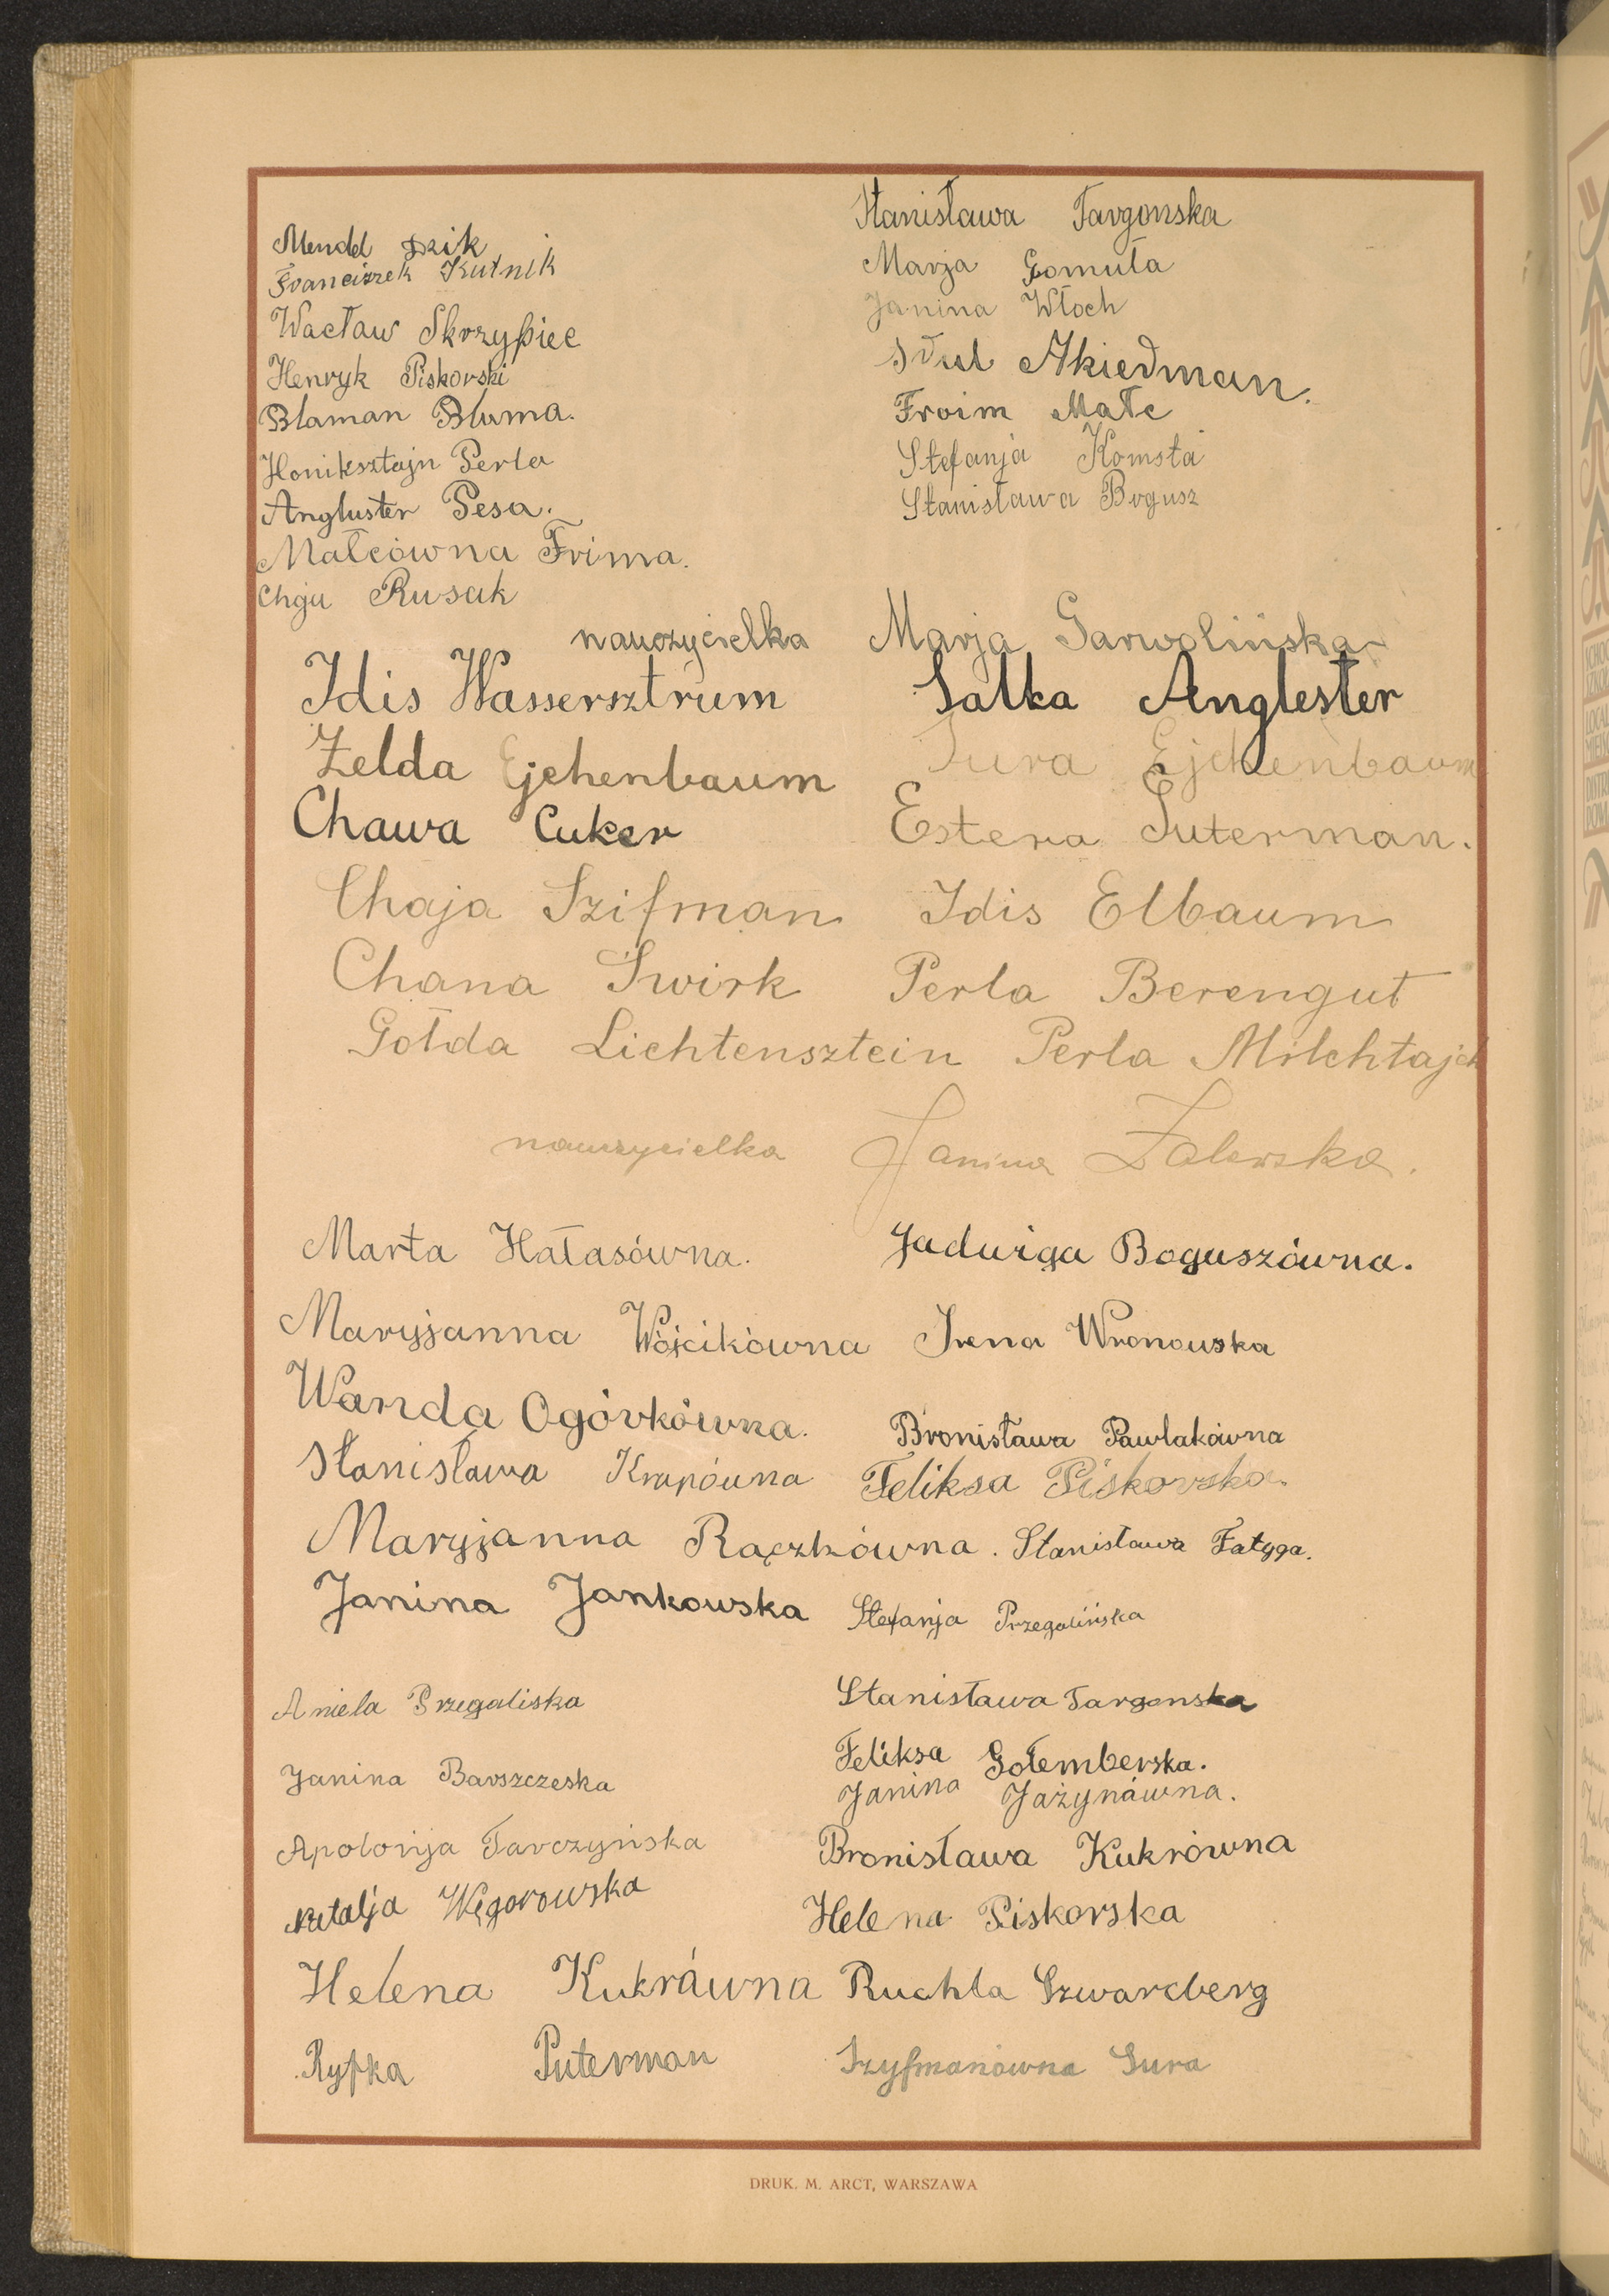 Stanisława Targonska
Mendel Dzik
Franciszek Kutnik
Marja Gomuła
Janina Włoch
Wacław Skrzypiec
Henryk Piskorski
Akiedman.
Blaman Bluma.
Froim Małc
Honiksztajn Perla
Stefanja Komsta
Angluster Pesa.
Stanisława Bogusz
Małcówna Frima.
Chaja Rusak
nauczycielka Marja Garwolińska
Idis Wassersztrum Salka Anglester
Zelda Ejchenbaum Sura Ejchenbaum
Chawa Cuker Estera Puterman.
Chaja Szifman Idis Elbaum
Chana Swirk Perla Berengut
Gołda Lichtensztein Perla Milchtajch
nauczycielka Janina Zalewska.
Marta Hałasówna. Jadwiga Boguszówna.
Maryjanna Wójcikówna Irena Wronowska
Wanda Ogórkówna. Bronisława Pawlakówna
Stanisława Krupówna Feliksa Piskorska.
Maryjanna Rączkówna. Stanisława Fatyga.
Janina Jankowska Stefanja Przegalińska
Aniela Przegaliska Stanisława Targonska
Feliksa Gołemberska.
Janina Barszczeska Janina Jażynówna.
Apolonja Tarczyńska Bronisława Kukrówna
Natalja Węgorowska Helena Piskorska
Helena Kukrówna Ruchla Szwarcberg
Ryfka Puterman Szyfmanówna Sura
DRUK. M. ARCT, WARSZAWA